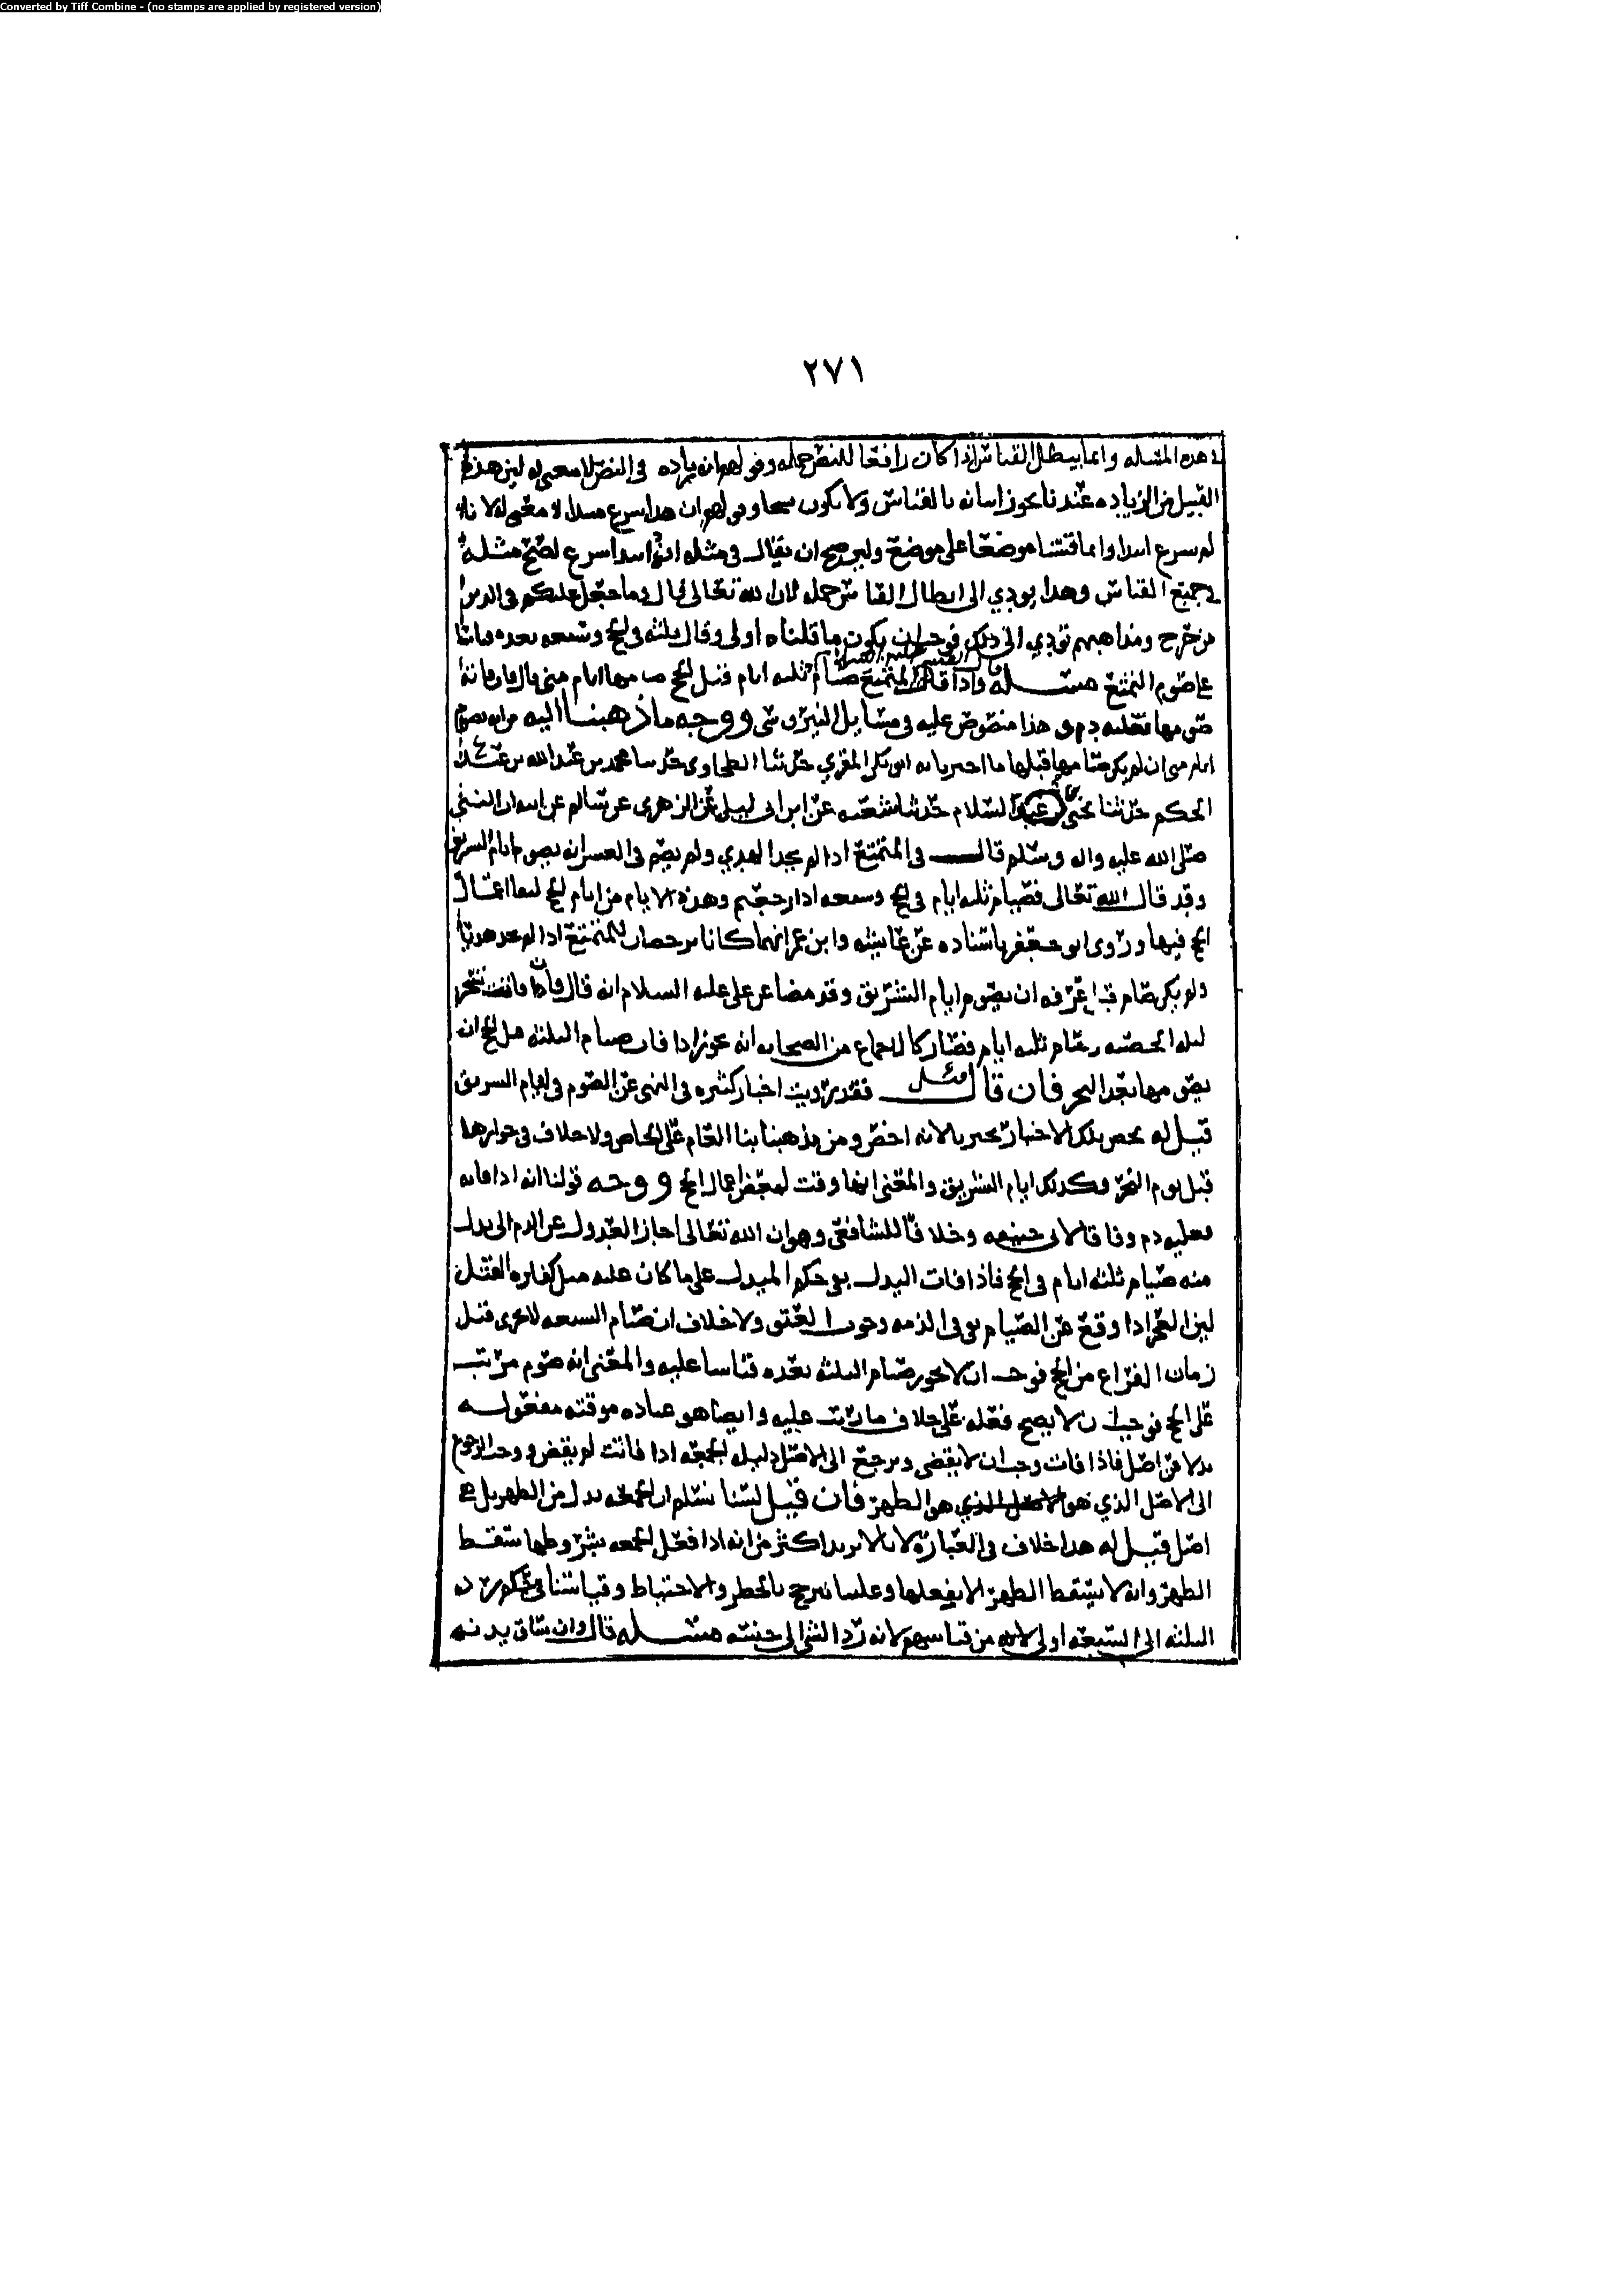 Converted by Tiff Combine - (no stamps are applied by registered version)
٢٧١
في هذه المسله وانما يبطل القياس اذا كان رافعا للنص جمله وقولهم انه زياده في النص لا معنى له لان هذا
القبيل من الزياده عندنا يجوز اثباته بالقياس ولا يكون نسخا وقولهم ان هذا شرع مبتدا لا معنى له لانا
لم نشرع ابتدا وانما قسنا موضعا على موضع ولو صح ان يقال في مثله انه ابتدا شرع لصح مثله
في جميع القياس وهذا يودي الى ابطال القياس جمله ولان الله تعالى قال وما جعل عليكم في الدين
من حرج ومذاهبهم تودي الى ذلك فوجب ان يكون ما قلناه اولى وقال ثلثه في الحج وسبعه بعده قياسا
على صوم التمتع مسله قال القسم عليه السلام واذا فات المتمتع صيام ثلثه ايام قبل الحج صامها ايام منى فان فاته
صومها فعليه دم وهذا منصوص عليه في مسايل النيروسي ووجه ما ذهبنا اليه من انه يصوم
ايام منى ان لم يكن صامها قبلها ما اخبرنا به ابو بكر المقري حدثنا الطحاوي حدثنا محمد بن عبد الله بن عبد
الحكم حدثنا يحيى بن عبد السلام حدثنا شعبه عن ابن ابي ليلى عن الزهري عن سالم عن ابيه ان النبي
صلى الله عليه واله وسلم قال في المتمتع اذا لم يجد الهدي ولم يصم في العشر انه يصوم ايام التشريق
وقد قال الله تعالى فصيام ثلثه ايام في الحج وسبعه اذا رجعتم وهذه الايام من ايام الحج لبقا اعمال
الحج فيها وروى ابو جعفر باسناده عن عايشه وابن عمر انهما كانا يرخصان للمتمتع اذا لم يجد هديا
ولم يكن صام قبل عرفه ان يصوم ايام التشريق وقد مضا عن علي عليه السلام انه قال فان فاتته تسحر
ليله الحصبه وصام ثلثه ايام فصار كالاجماع من الصحابه انه يجوز اذا فات صيام الثلثه قبل الحج ان
يصومها بعد النحر فان قال قائل فقد رويت اخبار كثيره في النهي عن الصوم في ايام التشريق
قيل له نخص تلك الاخبار بخبرنا لانه اخص ومن مذهبنا بنا العام على الخاص ولا خلاف في جوازها
قبل يوم النحر وكذلك ايام التشريق والمعنى انها وقت لبعض اعمال الحج ووجه قولنا انه اذا فاته
فعليه دم وفاقا لابي حنيفه وخلافا للشافعي وهو ان الله تعالى اجاز العدول عن الدم الى بدل
منه صيام ثلثه ايام في الحج فاذا فات البدل بقي حكم المبدل على ما كان عليه مثل كفاره القتل
لان العجز اذا وقع عن الصيام بقي في الذمه وجوب العتق ولا خلاف ان صيام السبعه لا يجزي قبل
زمان الفراغ من الحج فوجب ان لا يجوز صيام الثلثه بعده قياسا عليه والمعنى انه صوم مرتب
على الحج فوجب ان لا يصح فعله على خلاف ما رتب عليه وايضا هو عباده موقته مفعوله
بدلا من اصل فاذا فات وجب ان لا يقضى ويرجع الى الاصل دليله الجمعه اذا فاتت لم يقض ووجب الرجوع
الى الاصل الذي هو الظهر فان قيل لسنا نسلم ان الجمعه بدل من الظهر بل هي
اصل قيل له هذا خلاف في العباره لانا لا نريد اكثر من انه اذا فعل الجمعه بشروطها سقط
الظهر وانه لا يسقط الظهر الا بفعلها وعلتنا ترجح بالحظر والاحتياط وقياسنا في رد
الثلثه الى السبعه اولى من قياسهم لانه رد الشي الى جنسه مسله قال وان ساق بدنه